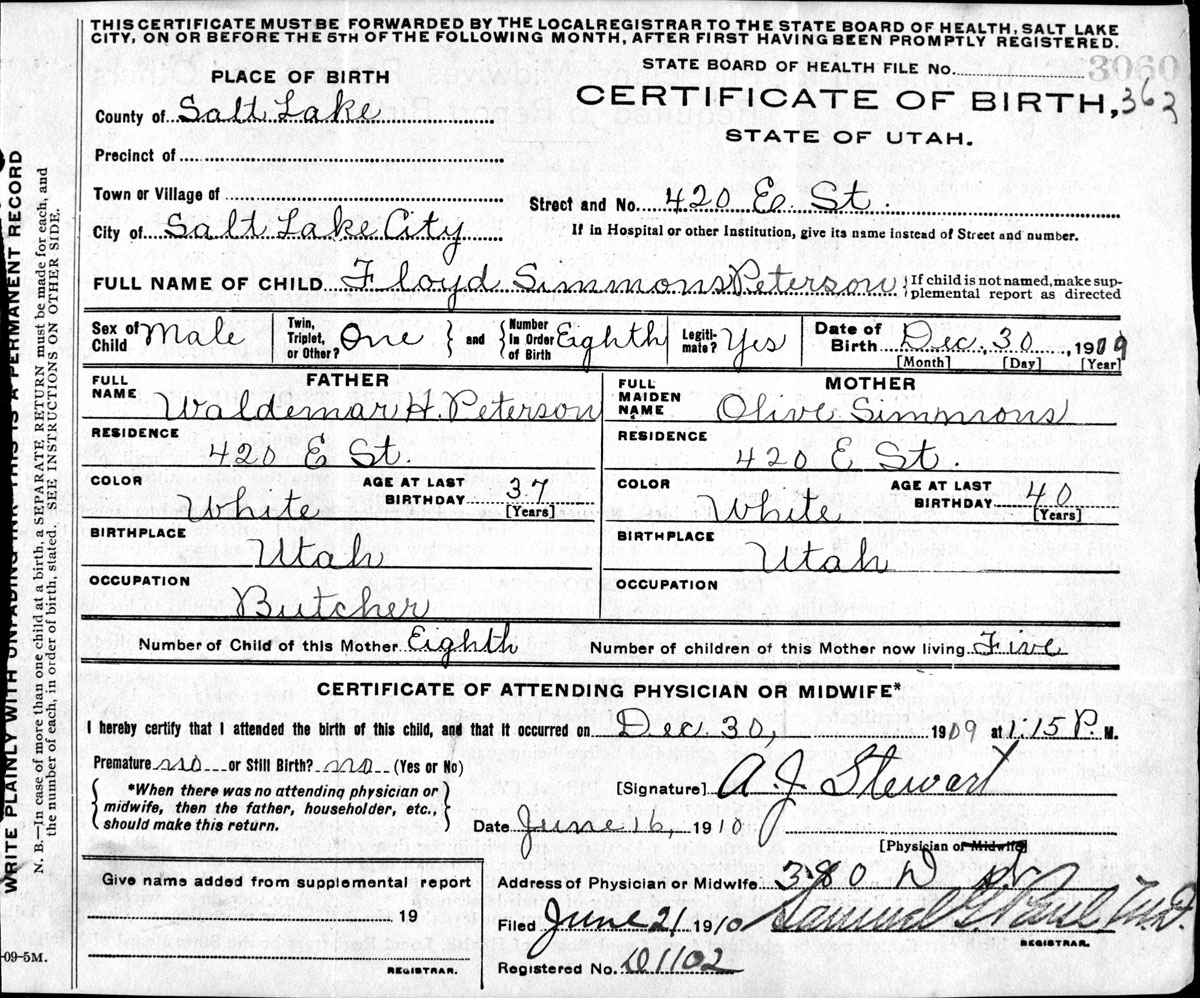 THIS CERTIFICATE MUST BE FORWARDED BY THE LOCAL REGISTRAR TO THE STATE BOARD OF HEALTH, SALT LAKE
CITY, ON OR BEFORE THE 5TH OF THE FOLLOWING MONTH, AFTER FIRST HAVING BEEN PROMPTLY REGISTERED.
STATE BOARD OF HEALTH FILE No. 3060
PLACE OF BIRTH
CERTIFICATE OF BIRTH, 363
County of Salt Lake
STATE OF UTAH.
Precinct of
Town or Village of
Street and No. 420 E. St.
City of Salt Lake City
If in Hospital or other Institution, give its name instead of Street and number.
FULL NAME OF CHILD Floyd Simmons Peterson { If child is not named, make sup-
plemental report as directed
Sex of Child Male Twin, Triplet, or Other? One } and { Number In Order of Birth Eighth Legiti- mate? Yes Date of Birth Dec. 30, 1909
[Month] [Day] [Year]
FATHER
FULL NAME Waldemar H. Peterson
RESIDENCE
420 E St.
COLOR White AGE AT LAST BIRTHDAY 37 [Years]
BIRTHPLACE
Utah
OCCUPATION
Butcher
MOTHER
FULL MAIDEN NAME Olive Simmons
RESIDENCE
420 E St.
COLOR White AGE AT LAST BIRTHDAY 40 [Years]
BIRTHPLACE
Utah
OCCUPATION
Number of Child of this Mother Eighth Number of children of this Mother now living Five
CERTIFICATE OF ATTENDING PHYSICIAN OR MIDWIFE*
I hereby certify that I attended the birth of this child, and that it occurred on Dec. 30, 1909 at 1:15 P. M.
Premature no or Still Birth? no (Yes or No)
{ *When there was no attending physician or
midwife, then the father, householder, etc.,
should make this return. }
[Signature] A. J. Stewart
Date June 16, 1910
[Physician or Midwife]
Give name added from supplemental report
19
REGISTRAR.
Address of Physician or Midwife 380 D St
Filed June 21 1910 Samuel G. Paul M.D.
REGISTRAR.
Registered No. D1102
-09-5M.
WRITE PLAINLY WITH UNFADING INK—THIS IS A PERMANENT RECORD
N. B.—In case of more than one child at a birth, a SEPARATE RETURN must be made for each, and
the number of each, in order of birth, stated. SEE INSTRUCTIONS ON OTHER SIDE.